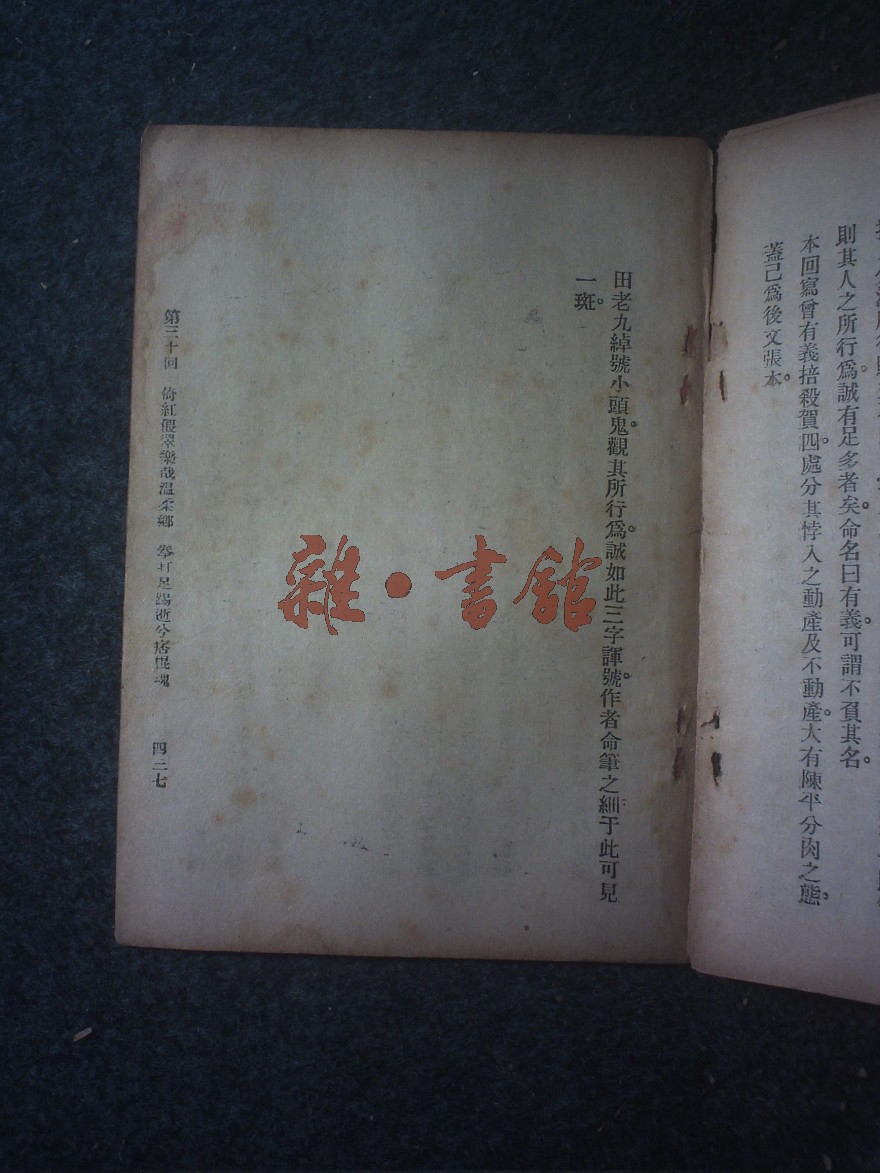 則其人之所行爲誠有足多者矣。命名曰有義。可謂不負其名。
本回寫曾有義掊殺賀四。處分其悖入之動產及不動產。大有陳平分肉之態。
蓋已爲後文張本。
田老九綽號小頭鬼。觀其所行爲。誠如此三字諢號。作者命筆之細。于此可見
一斑。
第三十回 倚紅偎翠樂哉溫柔鄉 拳打足踢逝兮痞棍魂 四三七
雜·書館